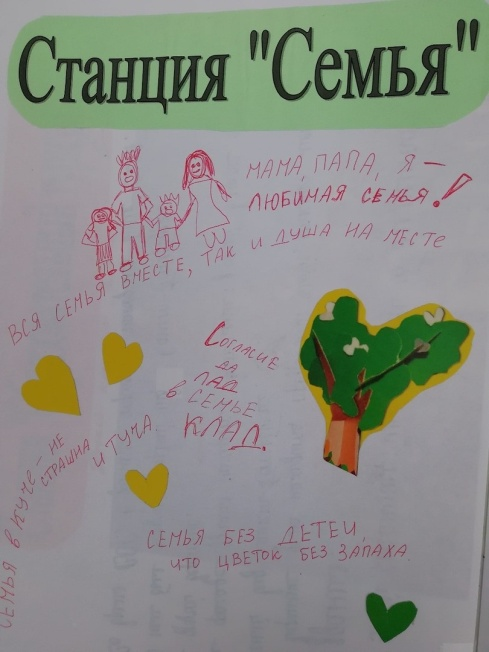 Станция "Семья"
МАМА, ПАПА, Я —
ЛЮБИМАЯ СЕМЬЯ!
ВСЯ СЕМЬЯ ВМЕСТЕ, ТАК И ДУША НА МЕСТЕ
СОГЛАСИЕ
ДА
ЛАД
В СЕМЬЕ
КЛАД.
СЕМЬЯ В КУЧЕ – НЕ
СТРАШНА
И ТУЧА
СЕМЬЯ БЕЗ ДЕТЕЙ,
ЧТО ЦВЕТОК БЕЗ ЗАПАХА